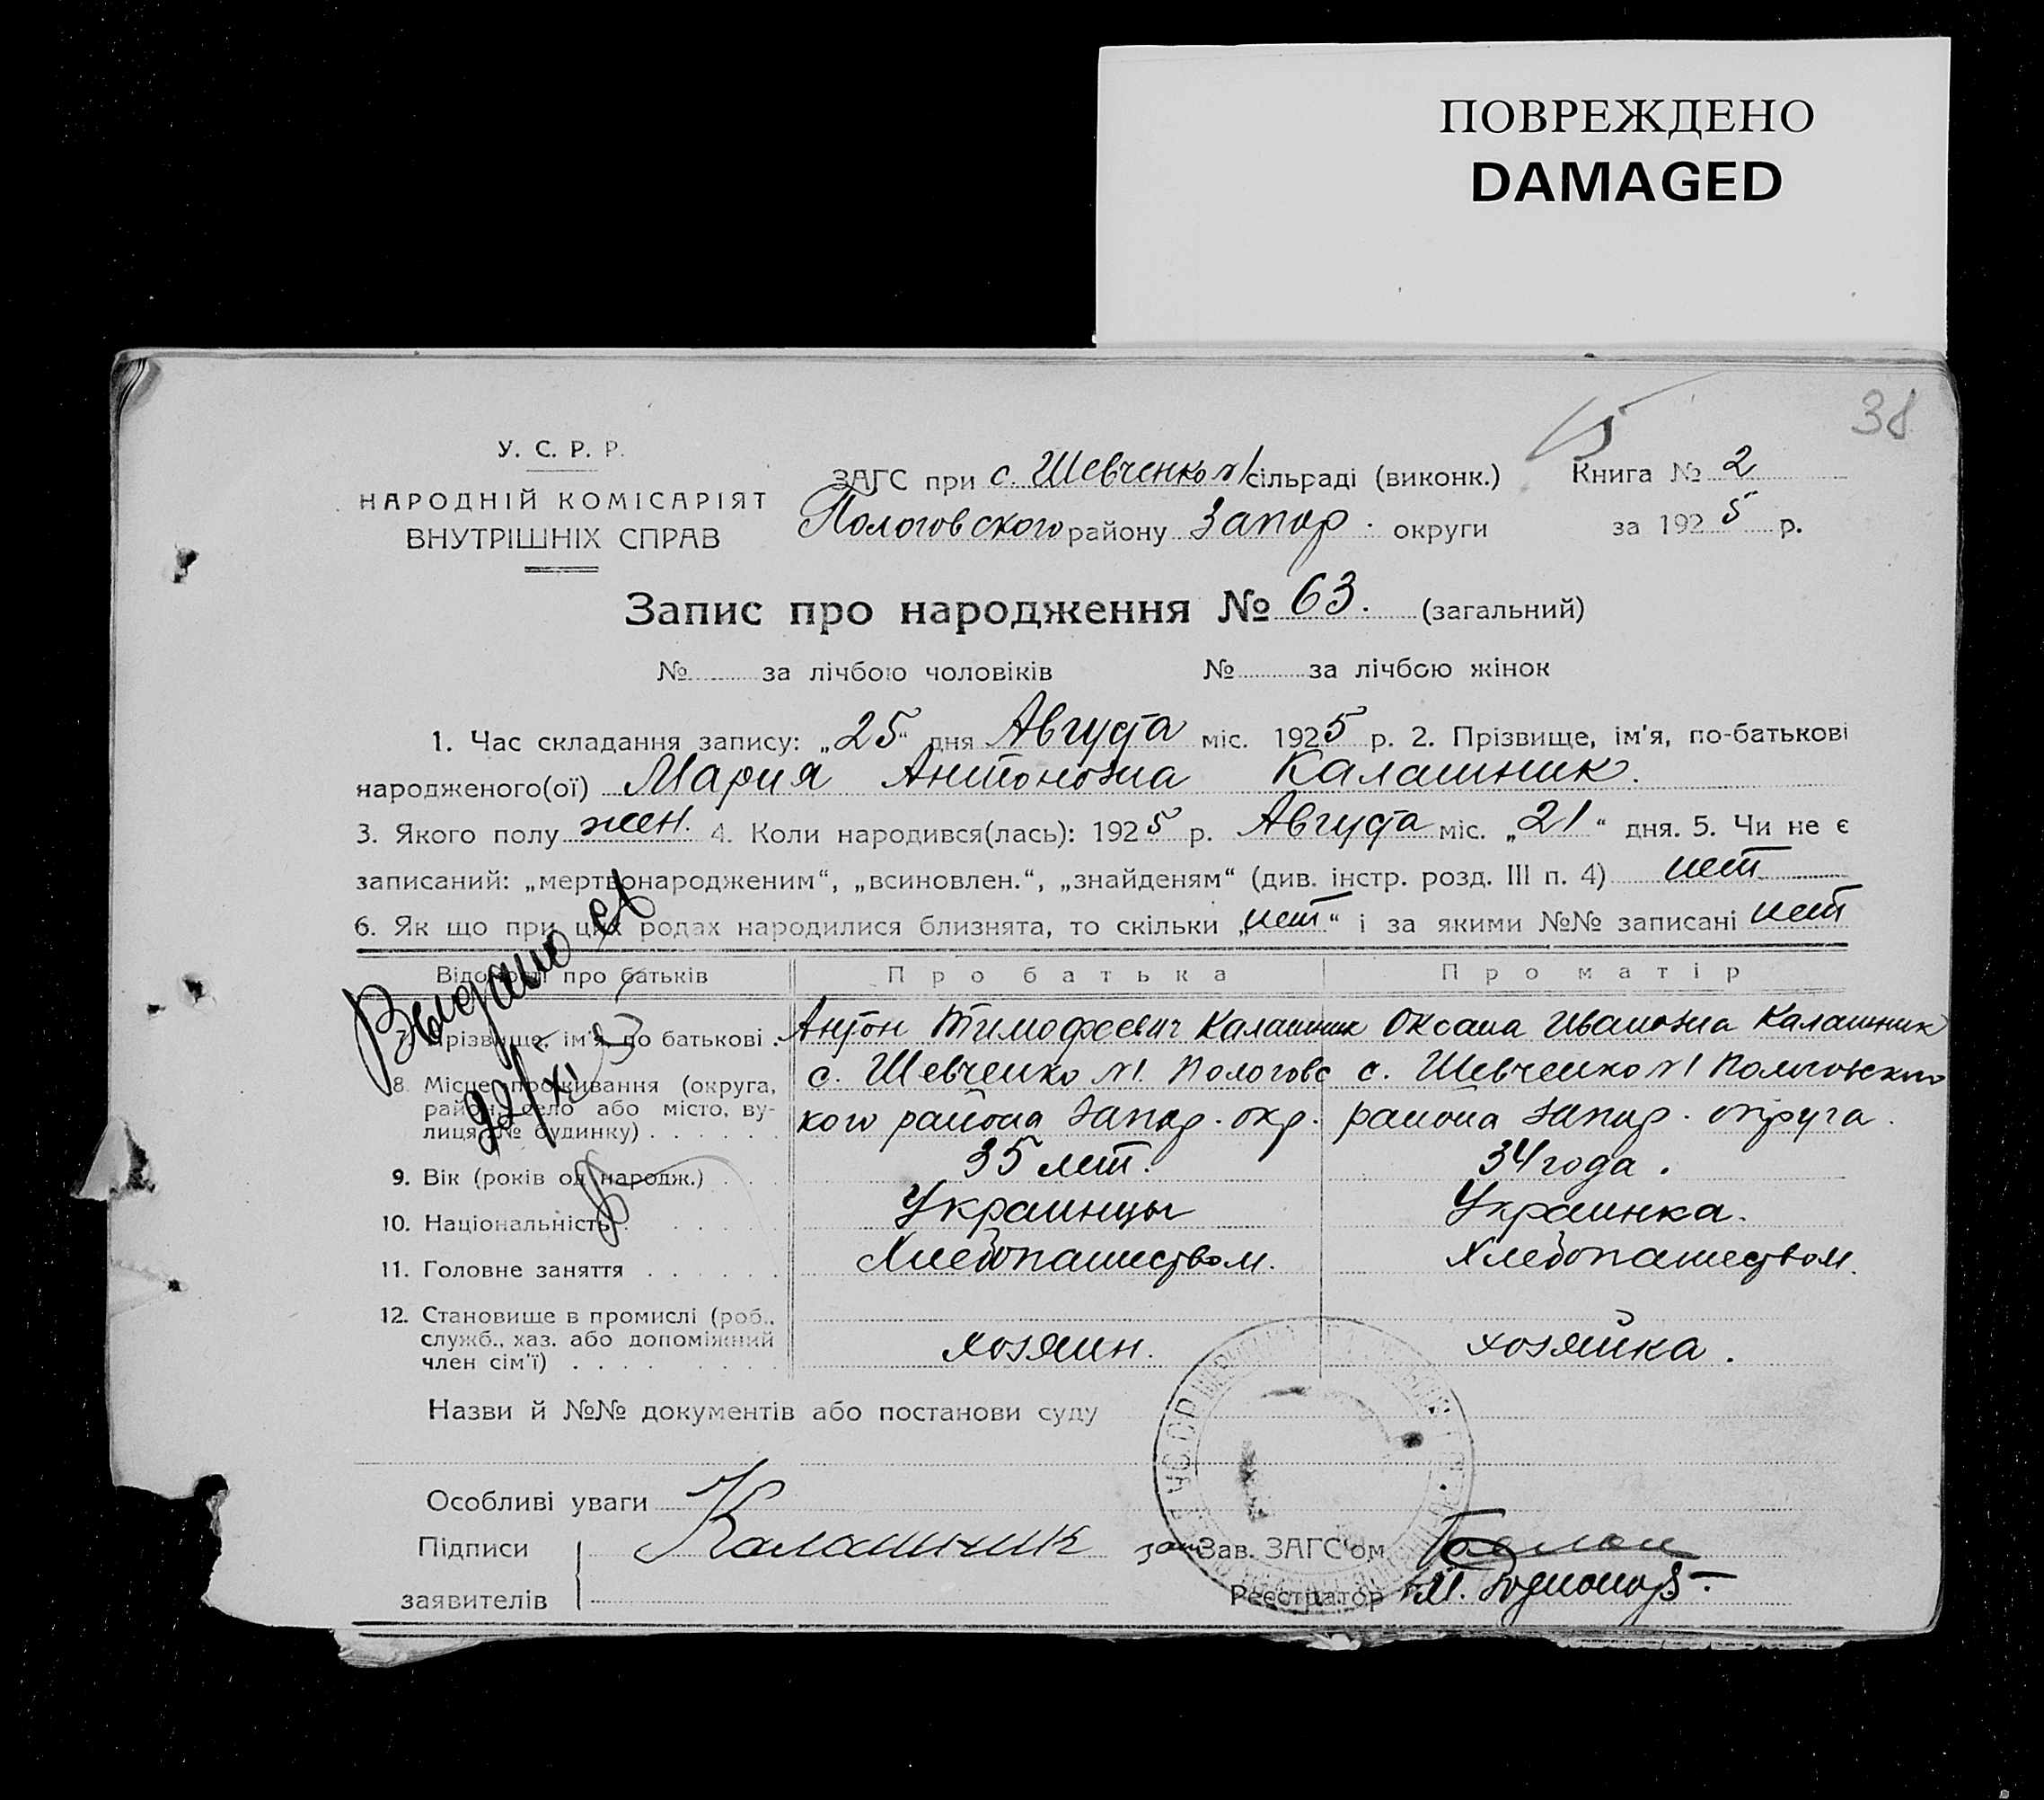 ПОВРЕЖДЕНО
DAMAGED
15
38
У. С. Р. Р.
НАРОДНІЙ КОМІСАРІЯТ
ВНУТРІШНІХ СПРАВ
ЗАГС при с. Шевченко №1 сільраді (виконк.)
Книга № 2
Пологовского району Запор. округи
за 1925 р.
Запис про народження № 63. (загальний)
№ за лічбою чоловіків № за лічбою жінок
1. Час складання запису: „25“ дня Августа міс. 1925 р. 2. Прізвище, ім'я, по-батькові
народженого(ої) Мария Антоновна Калашник.
3. Якого полу жен. 4. Коли народився(лась): 1925 р. Августа міс. „21“ дня. 5. Чи не є
записаний: „мертвонародженим“, „всиновлен.“, „знайденям“ (див. інстр. розд. III п. 4) нет
6. Як що при цих родах народилися близнята, то скільки „нет“ і за якими №№ записані нет
Відомості про батьків Про батька Про матір
Выдано
7. Прізвище, ім'я, по батькові . Антон Тимофеевич Калашник Оксана Ивановна Калашник
22/XI
8. Місце проживання (округа, с. Шевченко №1. Пологовс с. Шевченко №1 Пологовского
район, село або місто, ву-
лиця, № будинку) . . . . . . кого района Запор. окр. района Запор. округа.
9. Вік (років од народж.) . . . 35 лет. 34 года.
10. Національність . . . . . Украинцы Украинка.
11. Головне заняття . . . . . . Хлебопашеством. Хлебопашеством.
12. Становище в промислі (роб.,
служб., хаз. або допоміжний хозяин. хозяйка.
член сім'ї) . . . . . . . . .
Назви й №№ документів або постанови суду
УССР
Особливі уваги
Підписи Калашник Зав. ЗАГС'ом
заявителів Реєстратор